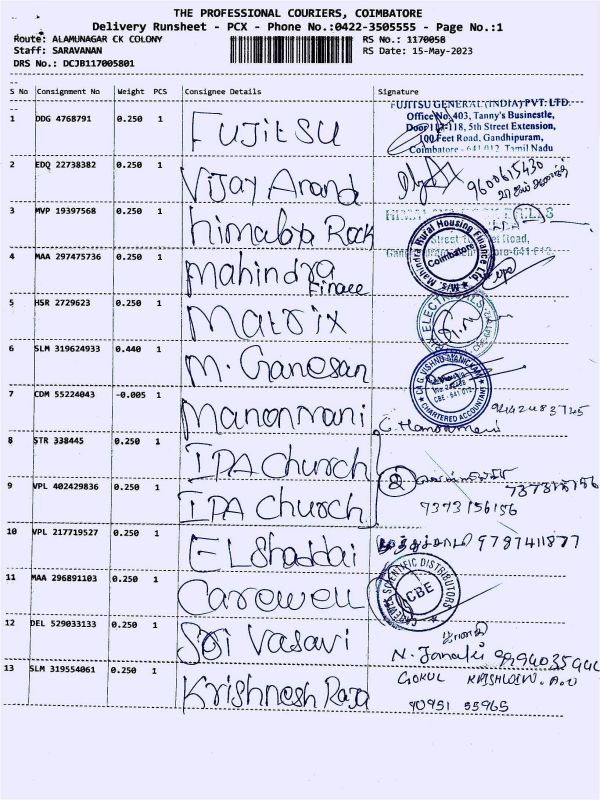 THE PROFESSIONAL COURIERS, COIMBATORE
Delivery Runsheet - PCX - Phone No.:0422-3505555 - Page No.:1
Route: ALAMUNAGAR CK COLONY RS No.: 1170058
Staff: SARAVANAN RS Date: 15-May-2023
DRS No.: DCJB117005801
S No Consignment No Weight PCS Consignee Details Signature
FUJITSU GENERAL (INDIA) PVT. LTD.
Office No. 403, Tanny's Businestle,
Door 117-118, 5th Street Extension,
100 Feet Road, Gandhipuram,
Coimbatore - 641 012. Tamil Nadu
1 DDG 4768791 0.250 1 Fujitsu
2 EDQ 22738382 0.250 1 Vijay Anand 9600615430
3 MVP 19397568 0.250 1 himalaya Rock
4 MAA 297475736 0.250 1 Mahindra Finace
M/s. Mahindra Rural Housing Finance Ltd. Coimbatore
5 HSR 2729623 0.250 1 Matrix
6 SLM 319624933 0.440 1 M. Ganesan
CA G. VISHNU MANICKAM
CBE - 641 012
CHARTERED ACCOUNTANT
7 CDM 55224043 -0.005 1 Manonmani
8 STR 338445 0.250 1 IPA Church
9 VPL 402429836 0.250 1 IPA Church 7373156156
10 VPL 217719527 0.250 1 ELShaddai 9787411877
11 MAA 296891103 0.250 1 Carewell
CAREWELL SCIENTIFIC DISTRIBUTORS CBE
12 DEL 529033133 0.250 1 Sri Vasavi
N. Janaki
13 SLM 319554061 0.250 1 Krishnesh Raja
GOKUL
90951 55965